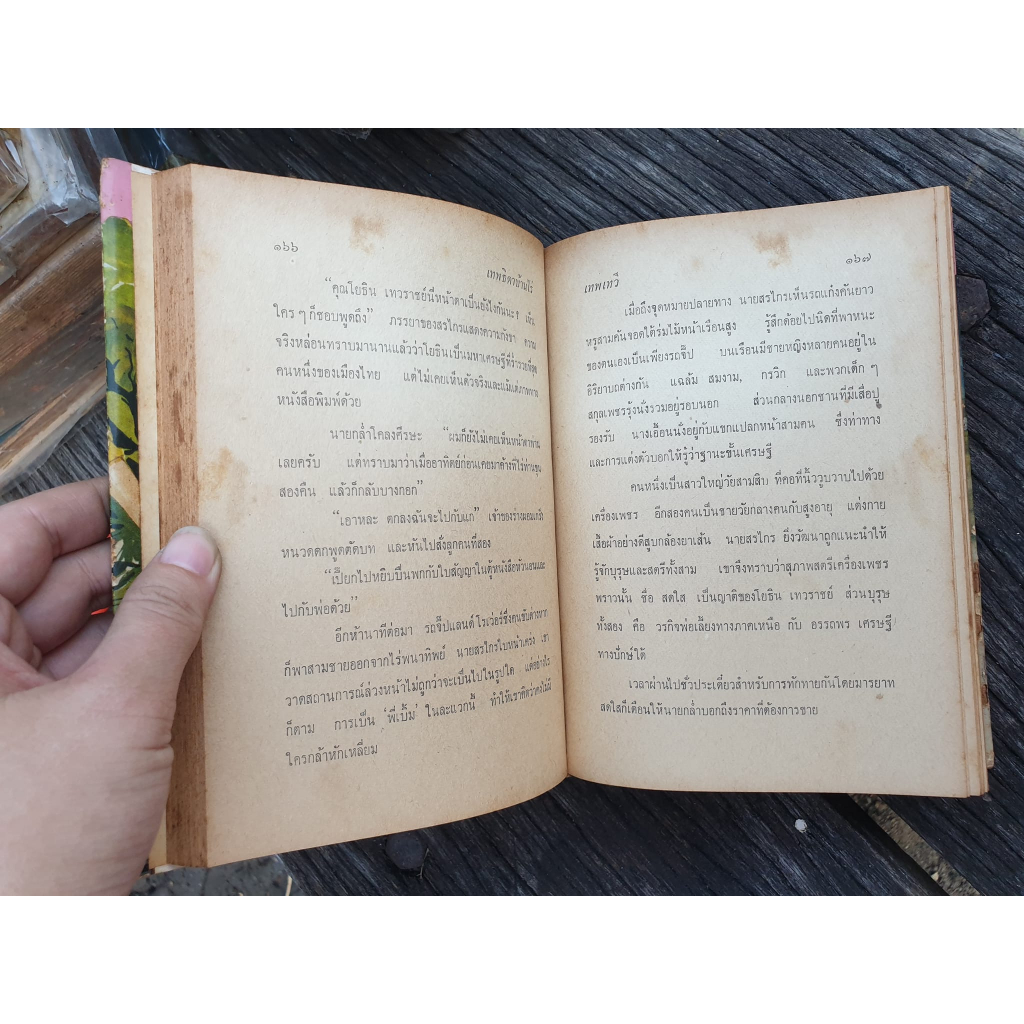 ๑๖๖
เทพธิดาบ้านไร่
“คุณโยธิน เทวราชย์นี่หน้าตาเป็นยังไงกันนะ? เห็น
ใคร ๆ ก็ชอบพูดถึง” ภรรยาของสรไกรแสดงความกังขา ความ
จริงหล่อนทราบมานานแล้วว่าโยธินเป็นมหาเศรษฐีที่ร่ำรวยที่สุด
คนหนึ่งของเมืองไทย แต่ไม่เคยเห็นตัวจริงและแม้แต่ภาพทาง
หนังสือพิมพ์ด้วย
นายกล่ำโคลงศีรษะ “ผมก็ยังไม่เคยเห็นหน้าตาท่าน
เลยครับ แต่ทราบมาว่าเมื่ออาทิตย์ก่อนเคยมาค้างที่ไร่ท่านขุน
สองคืน แล้วก็กลับบางกอก”
“เอาหละ ตกลงฉันจะไปกับแก” เจ้าของร่างผอมเกร็ง
หนวดดกพูดตัดบท และหันไปสั่งลูกคนที่สอง
“เปี๊ยกไปหยิบปืนพกกับใบสัญญาในตู้หนังสือหัวนอนและ
ไปกับพ่อด้วย”
อีกห้านาทีต่อมา รถจี๊ปแลนด์โรเว่อร์ซึ่งคนขับต่างหาก
ก็พาสามชายออกจากไร่พนาทิพย์ นายสรไกรใบหน้าเคร่ง เขา
วาดสถานการณ์ล่วงหน้าไม่ถูกว่าจะเป็นไปในรูปใด แต่อย่างไร
ก็ตาม การเป็น ‘พี่เบิ้ม’ ในละแวกนี้ ทำให้เขาคิดว่าคงไม่มี
ใครกล้าหักเหลี่ยม
เทพเทวี
๑๖๗
เมื่อถึงจุดหมายปลายทาง นายสรไกรเห็นรถเก๋งคันยาว
หรูสามคันจอดใต้ร่มไม้หน้าเรือนสูง รู้สึกด้อยไปนิดที่พาหนะ
ของตนเองเป็นเพียงรถจี๊ป บนเรือนมีชายหญิงหลายคนอยู่ใน
อิริยาบถต่างกัน แฉล้ม สมงาม, กรวิก และพวกเด็ก ๆ
สกุลเพชรรุ้งนั่งรวมอยู่รอบนอก ส่วนกลางนอกชานที่มีเสื่อปู
รองรับ นางเอื้อนนั่งอยู่กับแขกแปลกหน้าสามคน ซึ่งท่าทาง
และการแต่งตัวบอกให้รู้ว่าฐานะชั้นเศรษฐี
คนหนึ่งเป็นสาวใหญ่วัยสามสิบ ที่คอที่นิ้ววูบวาบไปด้วย
เครื่องเพชร อีกสองคนเป็นชายวัยกลางคนกับสูงอายุ แต่งกาย
เสื้อผ้าอย่างดีสูบกล้องยาเส้น นายสรไกร ยิ่งวัฒนาถูกแนะนำให้
รู้จักบุรุษและสตรีทั้งสาม เขาจึงทราบว่าสุภาพสตรีเครื่องเพชร
พราวนั้น ชื่อ สดใส เป็นญาติของโยธิน เทวราชย์ ส่วนบุรุษ
ทั้งสอง คือ วรกิจพ่อเลี้ยงทางภาคเหนือ กับ อรรถพร เศรษฐี
ทางปักษ์ใต้
เวลาผ่านไปชั่วประเดี๋ยวสำหรับการทักทายกันโดยมารยาท
สดใสก็เตือนให้นายกล่ำบอกถึงราคาที่ต้องการขาย